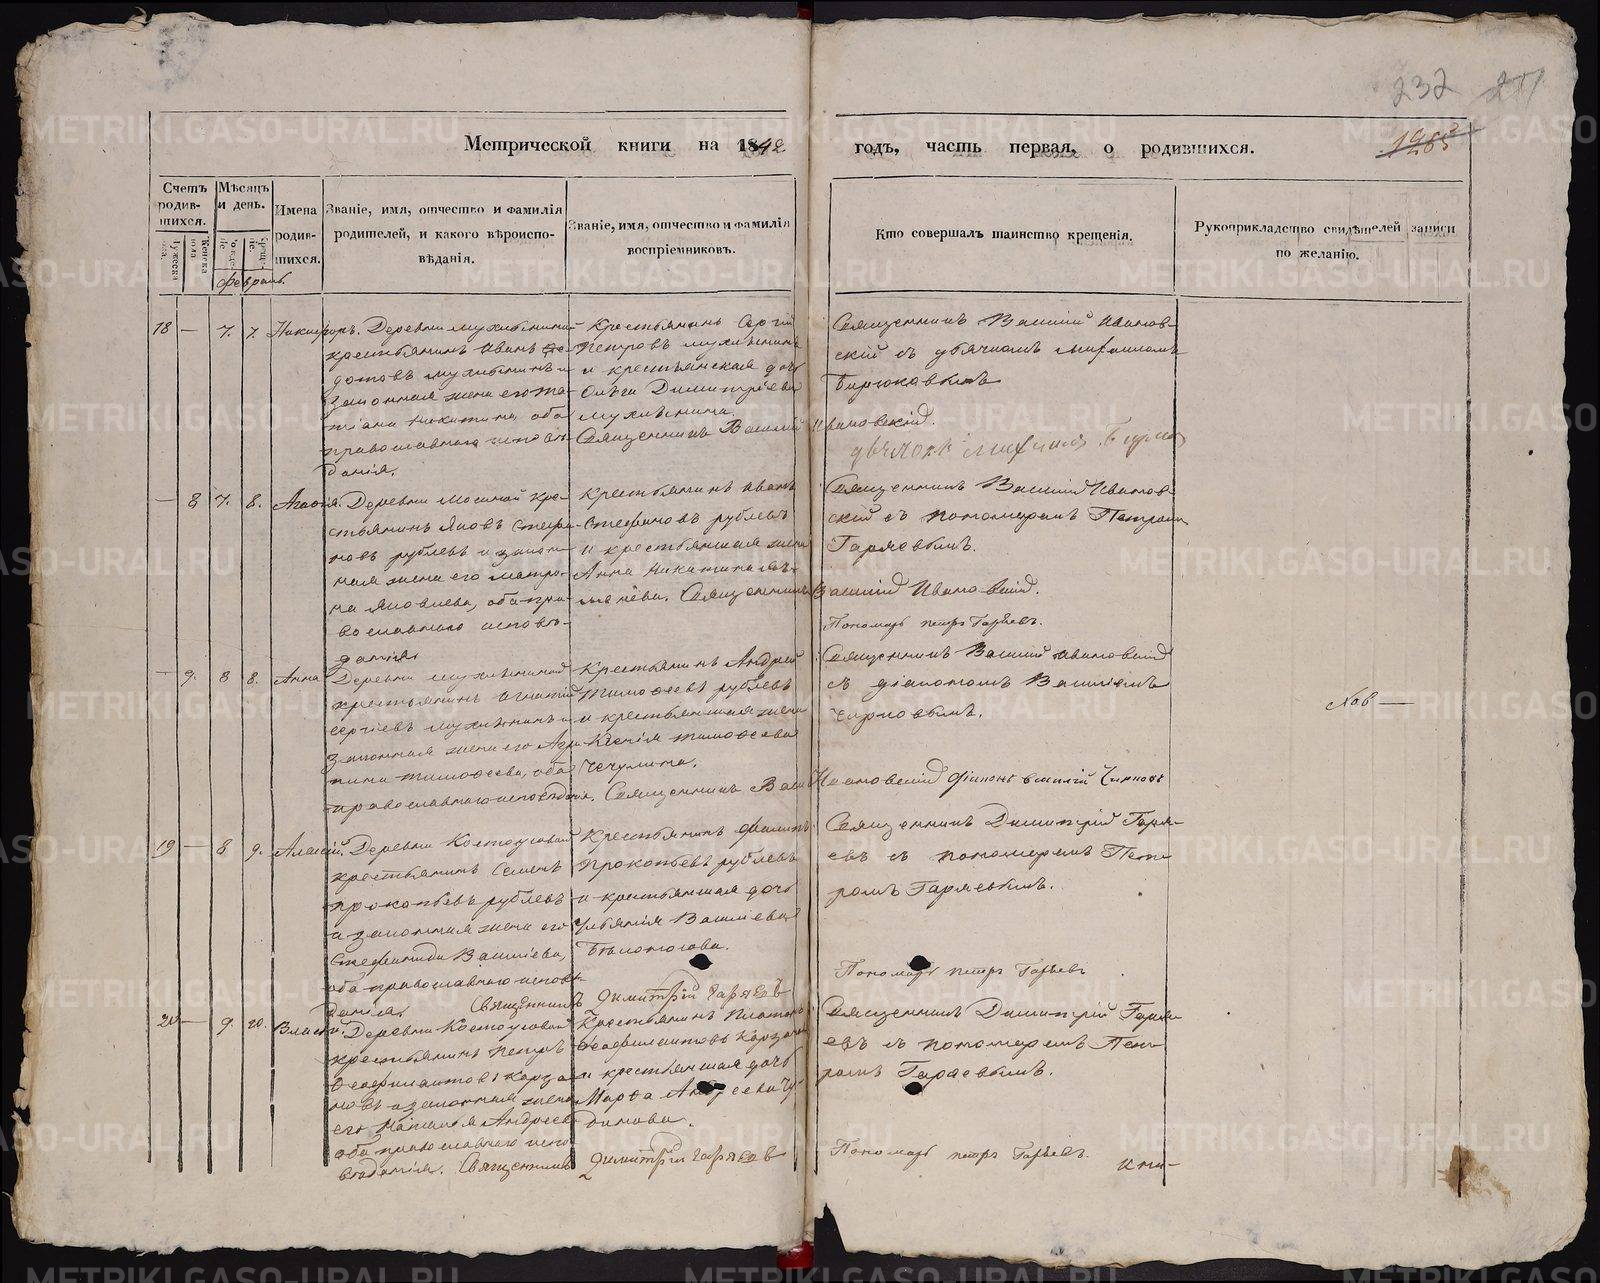 232
Метрической книги на 1842 годъ, часть первая, о родившихся.
1265
Счетъ родившихся.
Мѣсяцъ и день.
Имена родившихся.
Званіе, имя, отчество и фамилія родителей, и какого вѣроисповѣданія.
Званіе, имя, отчество и фамилія воспріемниковъ.
Кто совершалъ таинство крещенія.
Рукоприкладство свидѣтелей записи по желанію.
Февраль.
18 — 7. 7. Никифоръ.
Деревни
крестьянинъ Иванъ Ѳе-
дотовъ
законная жена его Та-
тіана Никитина, оба
православнаго исповѣ-
данія.
Крестьянинъ Сергій
Петровъ
и крестьянская дочь
Ольга Димитріева
Священникъ Василій Ивановскій.
Священникъ Василій Иванов-
скій съ дьячкомъ Михаиломъ
Бирюковымъ
— 8 7. 8. Агаѳія.
Деревни Мосиной кре-
стьянинъ Яковъ Стефа-
новъ Рублевъ и закон-
ная жена его Матро-
на Яковлева, оба пра-
вославнаго исповѣ-
данія
Крестьянинъ Иванъ
Стефановъ Рублевъ
и крестьянская жена
Анна Никитина
Священникъ Василій Ивановскій.
Священникъ Василій Иванов-
скій съ пономаремъ Петромъ
Гаряевымъ.
Пономарь Петръ Гаряевъ.
— 9. 8 8. Анна
Деревни
крестьянинъ Игнатій
Сергіевъ
законная жена его Агри-
пина Тимоѳеева, оба
православнаго исповѣданія.
Крестьянинъ Андрей
Тимоѳеевъ Рублевъ
и крестьянская жена
Ксенія Тимоѳеева
Чечулина.
Священникъ Василій Ивановскій
Священникъ Василій Ивановскій
съ діакономъ Василіемъ
Чирковымъ.
19 — 8 9. Алексій.
Деревни Костоусовой
крестьянинъ Семенъ
Прокопьевъ Рублевъ
и законная жена его
Стефанида Васильева,
оба православнаго исповѣ-
данія.
Крестьянинъ Филипъ
Прокопьевъ Рублевъ
и крестьянская дочь
Ульянія Васильева
Бѣлоносова.
Священникъ Димитрій Гаряевъ
Священникъ Димитрій Гаря-
евъ съ пономаремъ Пет-
ромъ Гаряевымъ.
Пономарь Петръ Гаряевъ
20 — 9. 10. Власій.
Деревни Костоусовой
крестьянинъ Петръ
Ѳеофилактовъ Корза-
новъ и законная жена
его Наталія Андреева
оба православнаго испо-
вѣданія.
Крестьянинъ Платонъ
Ѳеофилактовъ
и крестьянская дочь
Марѳа Андреева
Священникъ Димитрій Гаряевъ
Священникъ Димитрій Гаря-
евъ съ пономаремъ Пет-
ромъ Гараевымъ.
Пономарь Петръ Гаряевъ.
METRIKI.GASO-URAL.RU